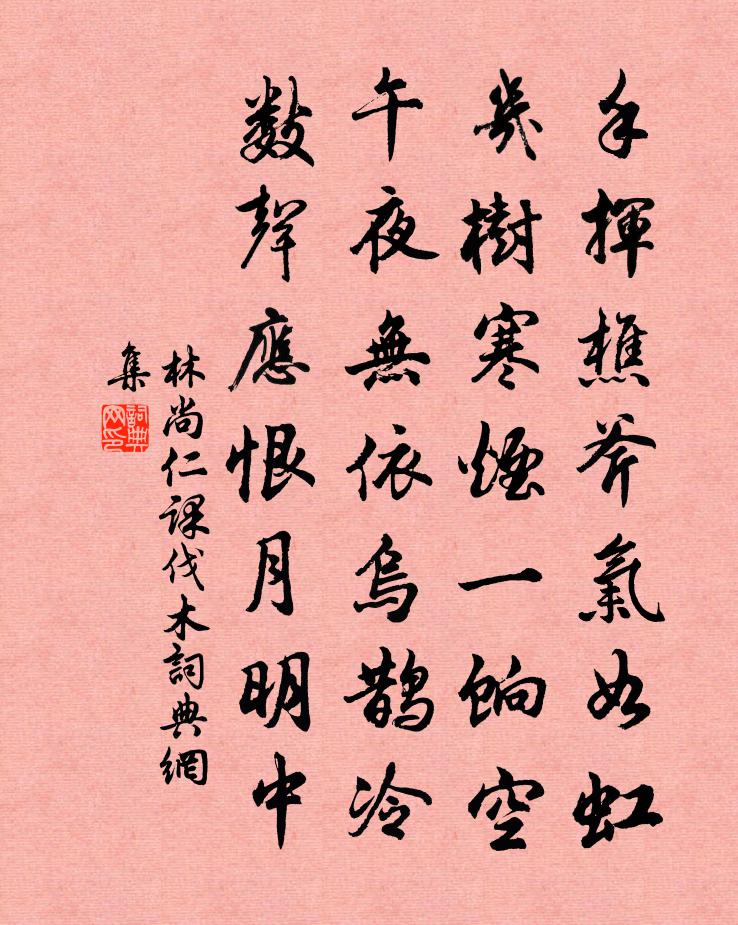 手揮樵斧氣如虹
幾樹寒煙一餉空
午夜無依烏鵲冷
數聲應恨月明中
林尚仁課伐木詞典網
集
詞典网印